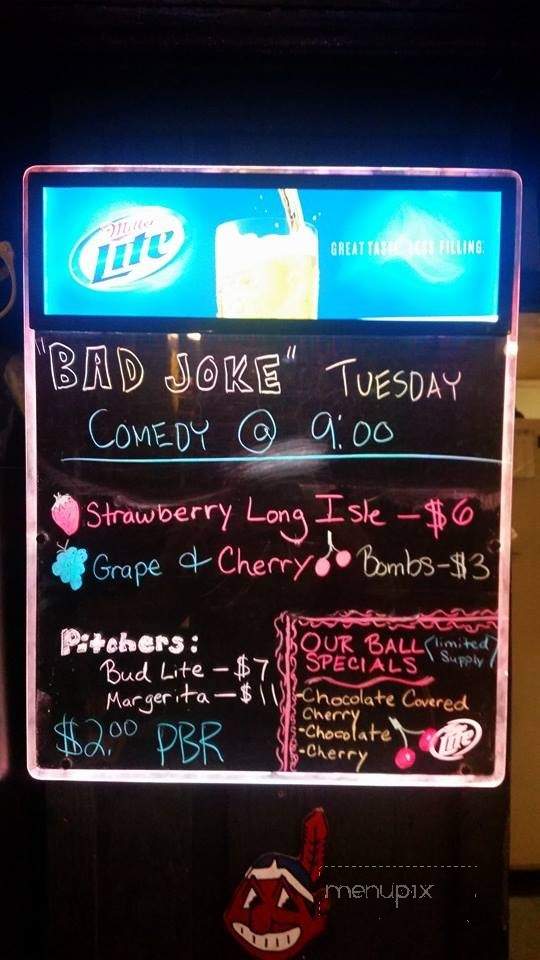 Miller
Lite
GREAT TASTE LESS FILLING.
"BAD JOKE" TUESDAY
COMEDY @ 9:00
Strawberry Long Isle - $6
Grape & Cherry Bombs - $3
Pitchers:
Bud Lite - $7
Margerita - $11
$2.00 PBR
OUR BALL SPECIALS (limited Supply)
- Chocolate Covered
Cherry
- Chocolate
- Cherry
Lite
menupix